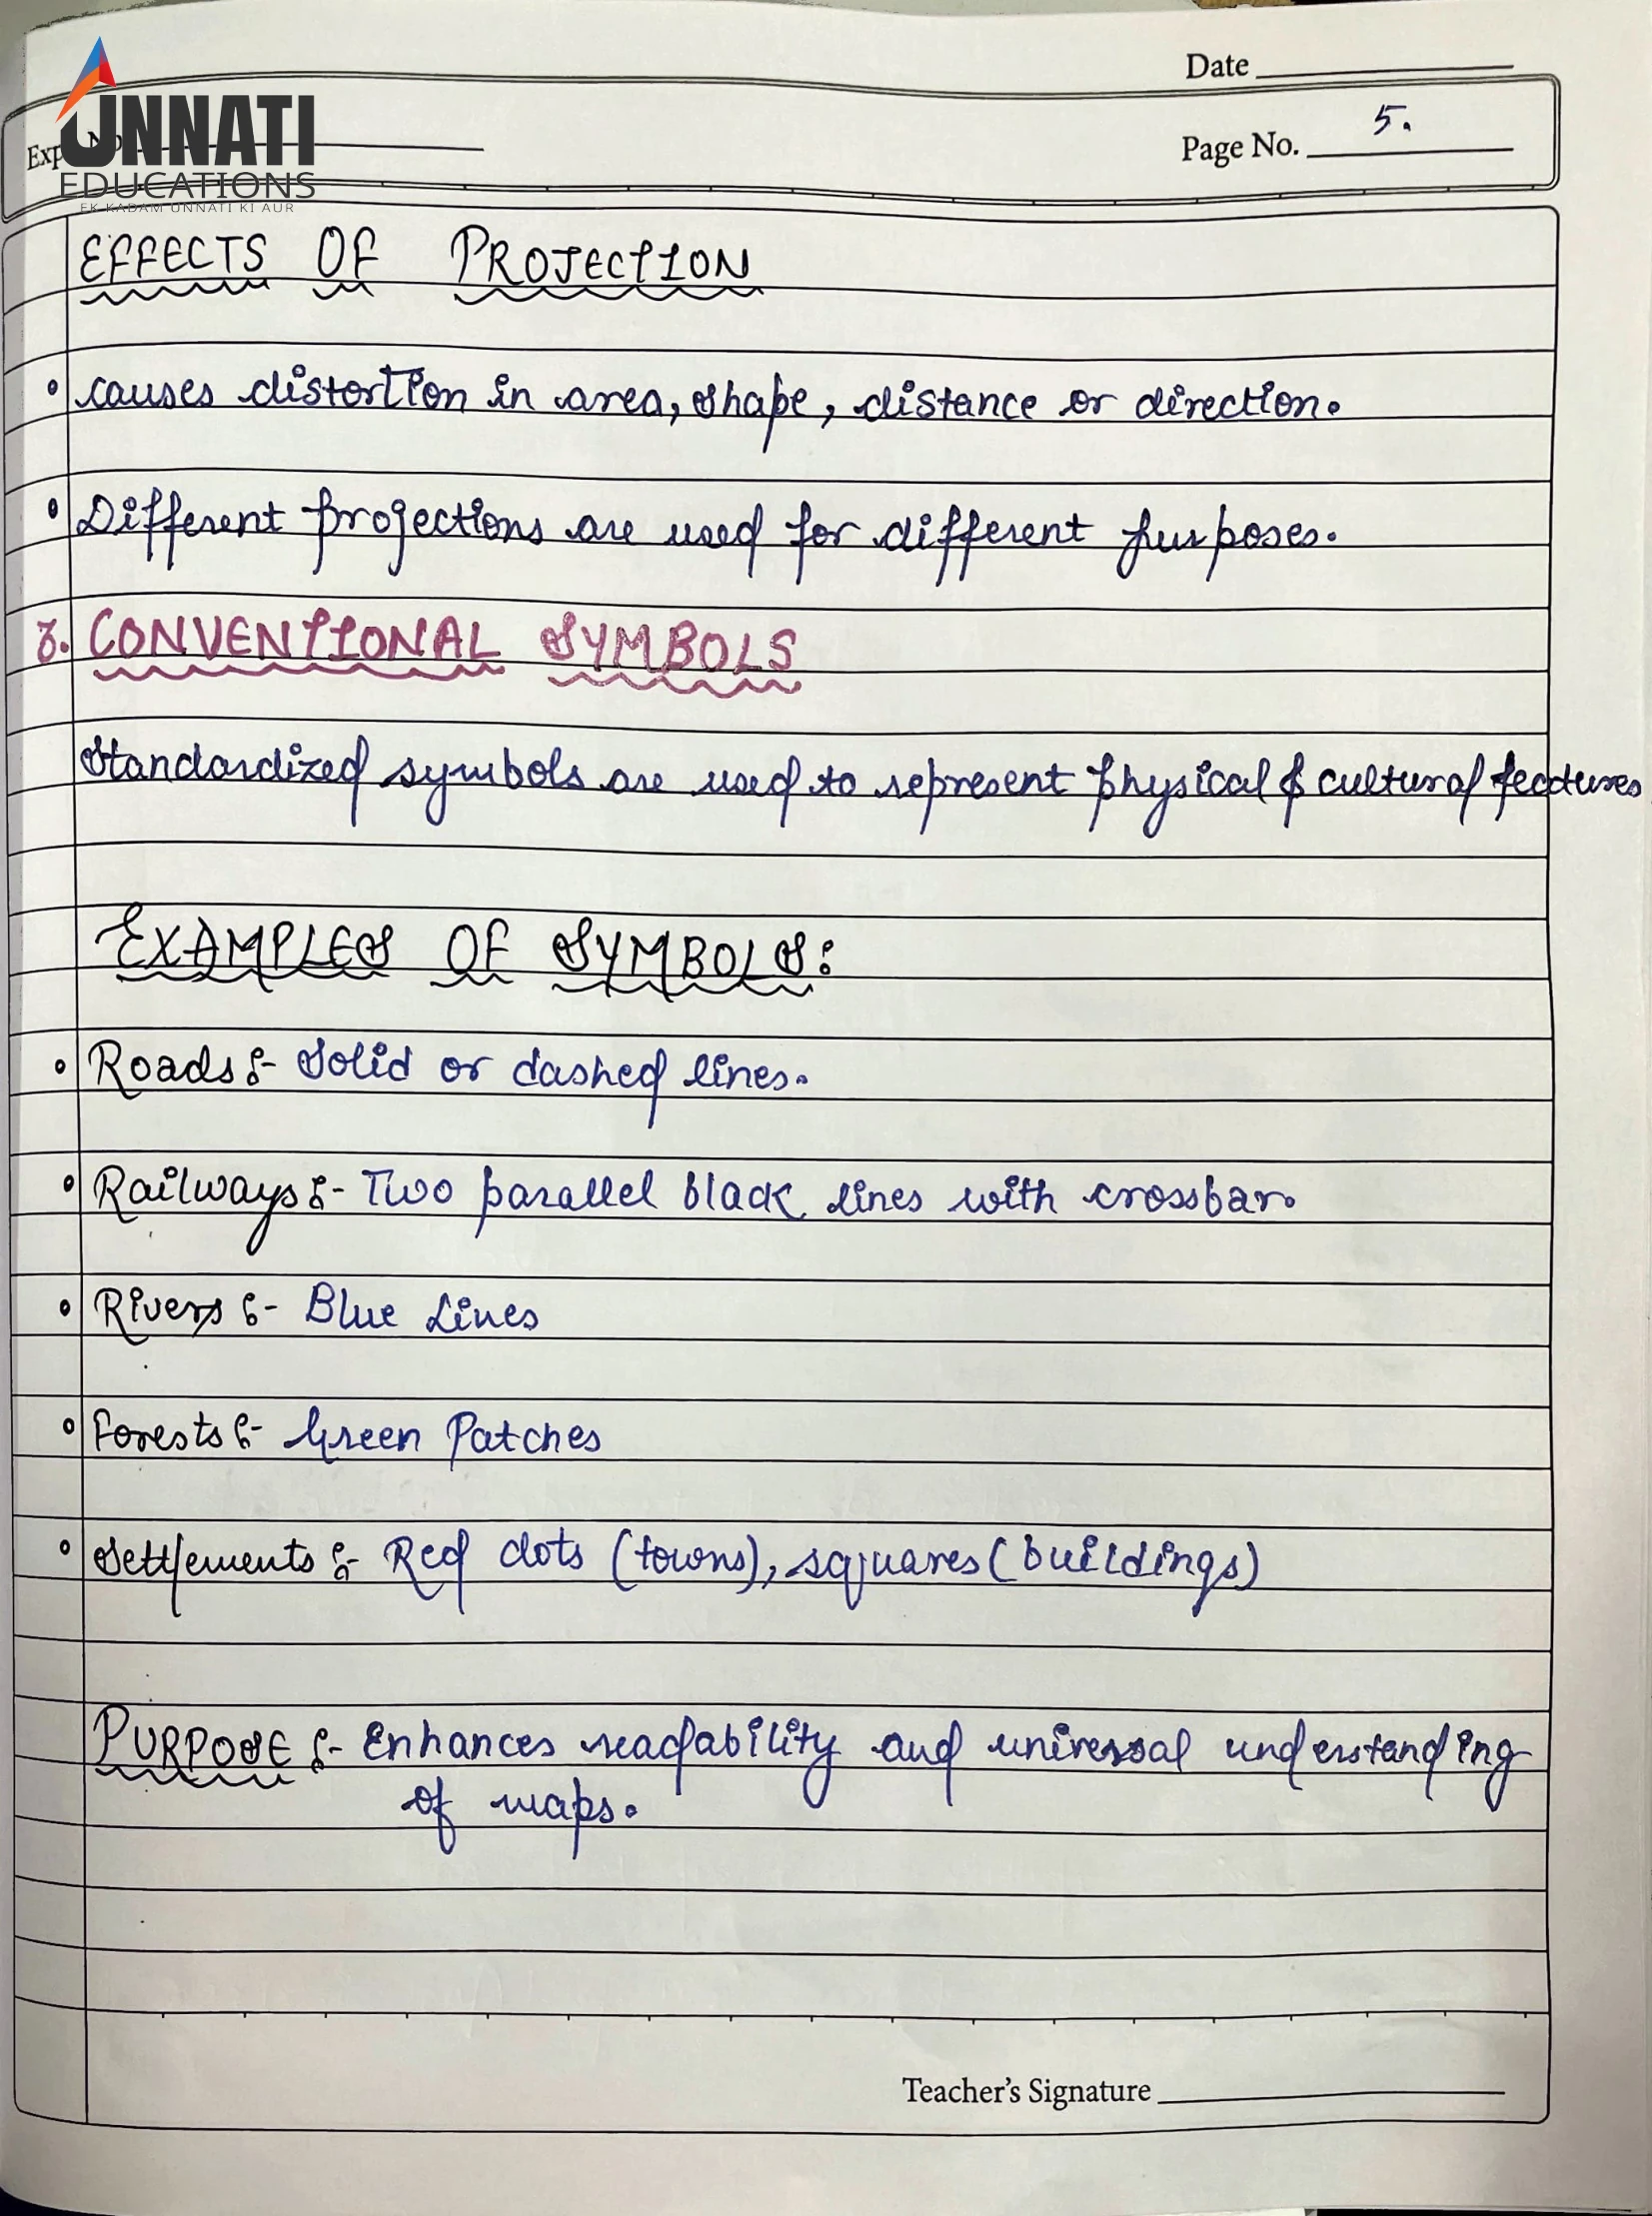 Date
UNNATI
EDUCATIONS
EK KADAM UNNATI KI AUR
Page No. 5.
EFFECTS OF PROJECTION
• causes distortion in area, shape, distance or direction.
• Different projections are used for different purposes.
3. CONVENTIONAL SYMBOLS
Standardized symbols are used to represent physical & cultural features
EXAMPLES OF SYMBOLS:
• Roads :- Solid or dashed lines.
• Railways :- Two parallel black lines with crossbar.
• Rivers :- Blue Lines
• Forests :- Green Patches
• Settlements :- Red dots (towns), squares (buildings)
PURPOSE :- Enhances readability and universal understanding
of maps.
Teacher's Signature